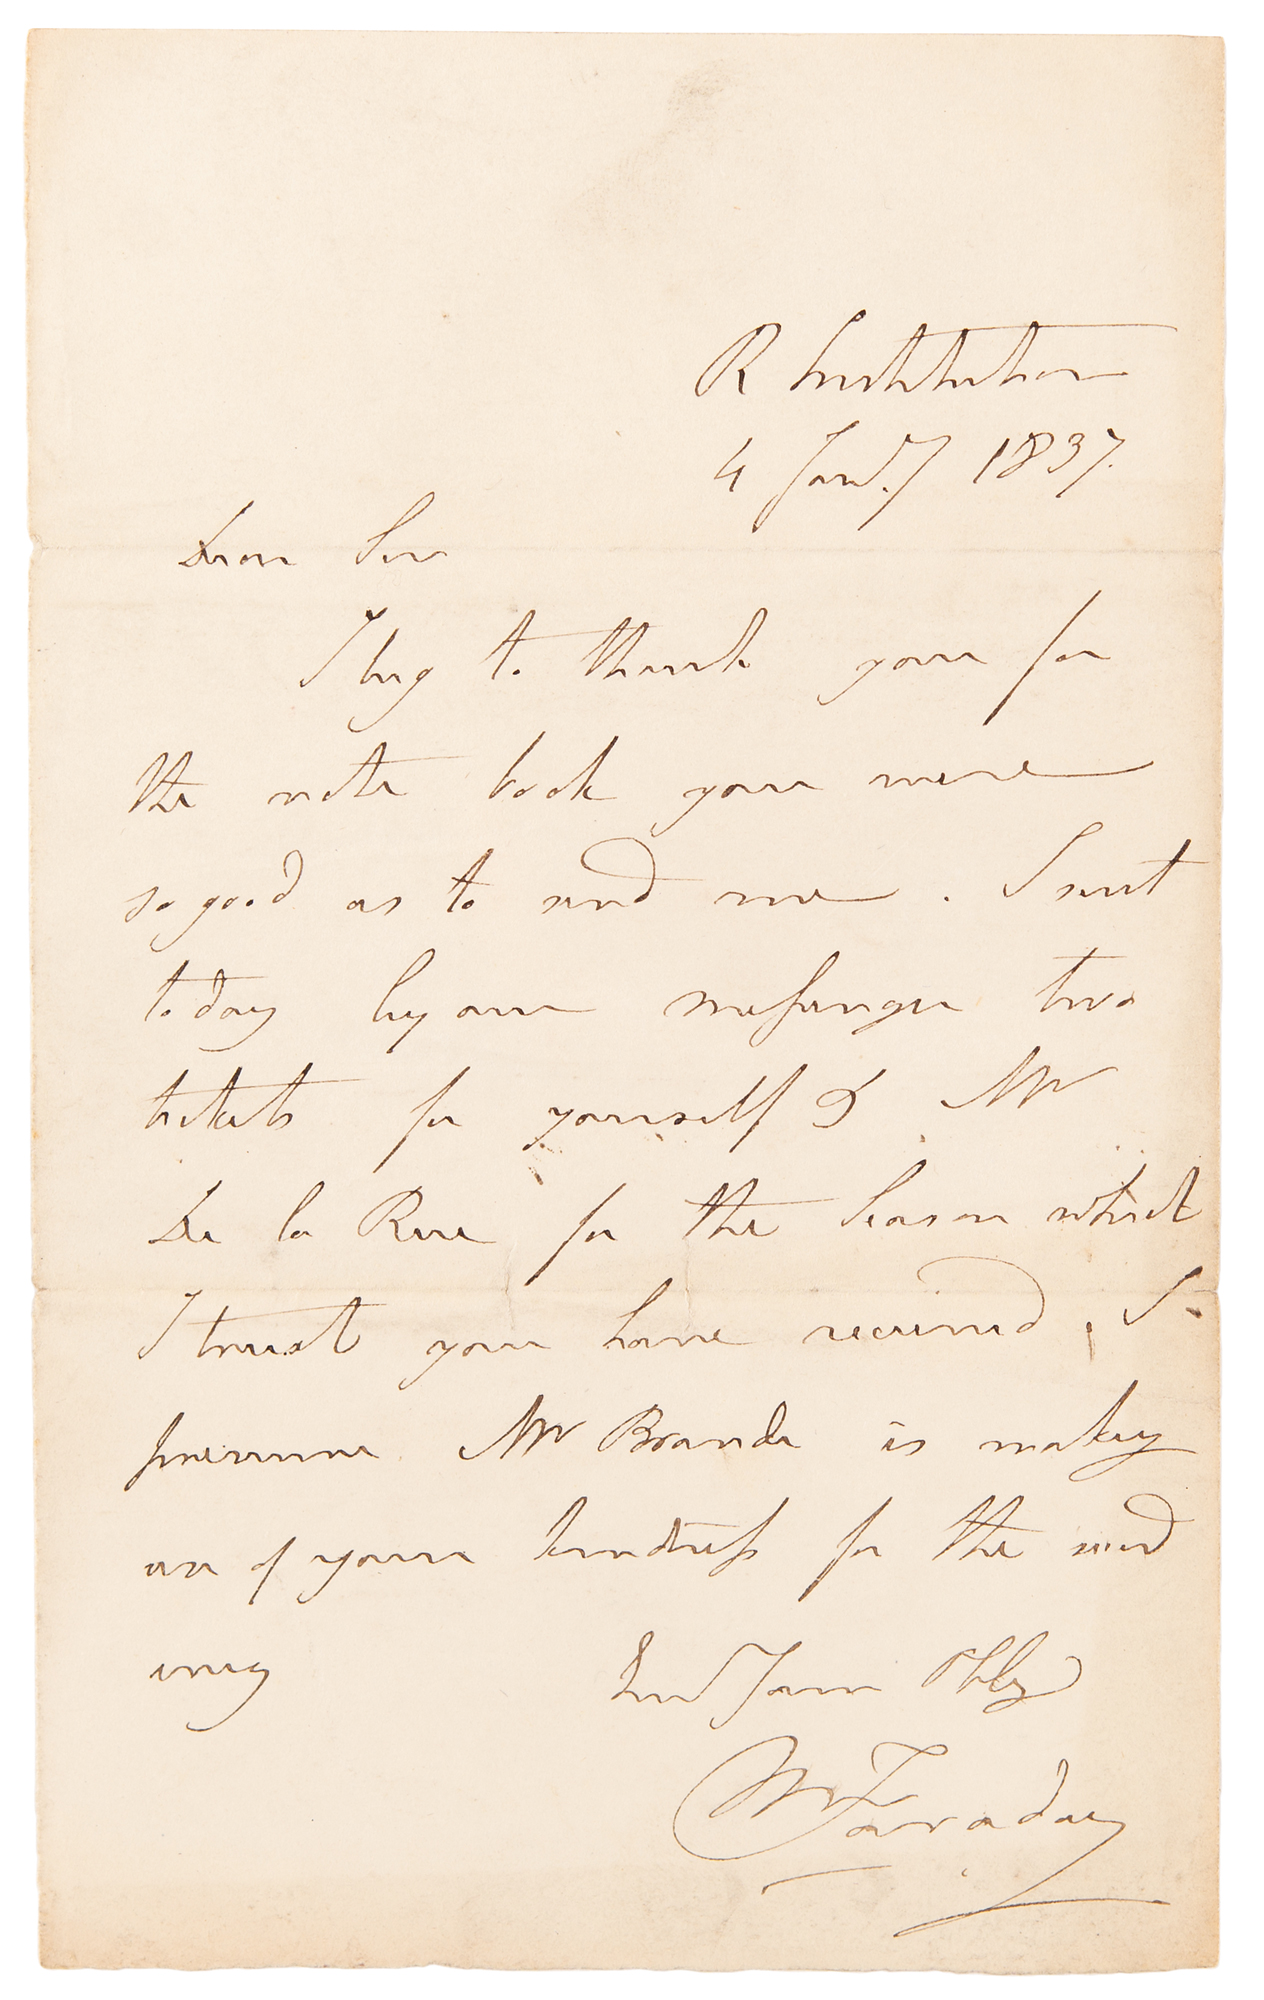 R Institution
4 Jany 1837.
Dear Sir
I beg to thank you for
the note book you were
so good as to send me. I sent
today by our messenger two
tickets for yourself & Mr
De la Rue for the Season which
I trust you have received. I
presume Mr Brande is making
use of your kindness for the
Your Obly
M Faraday